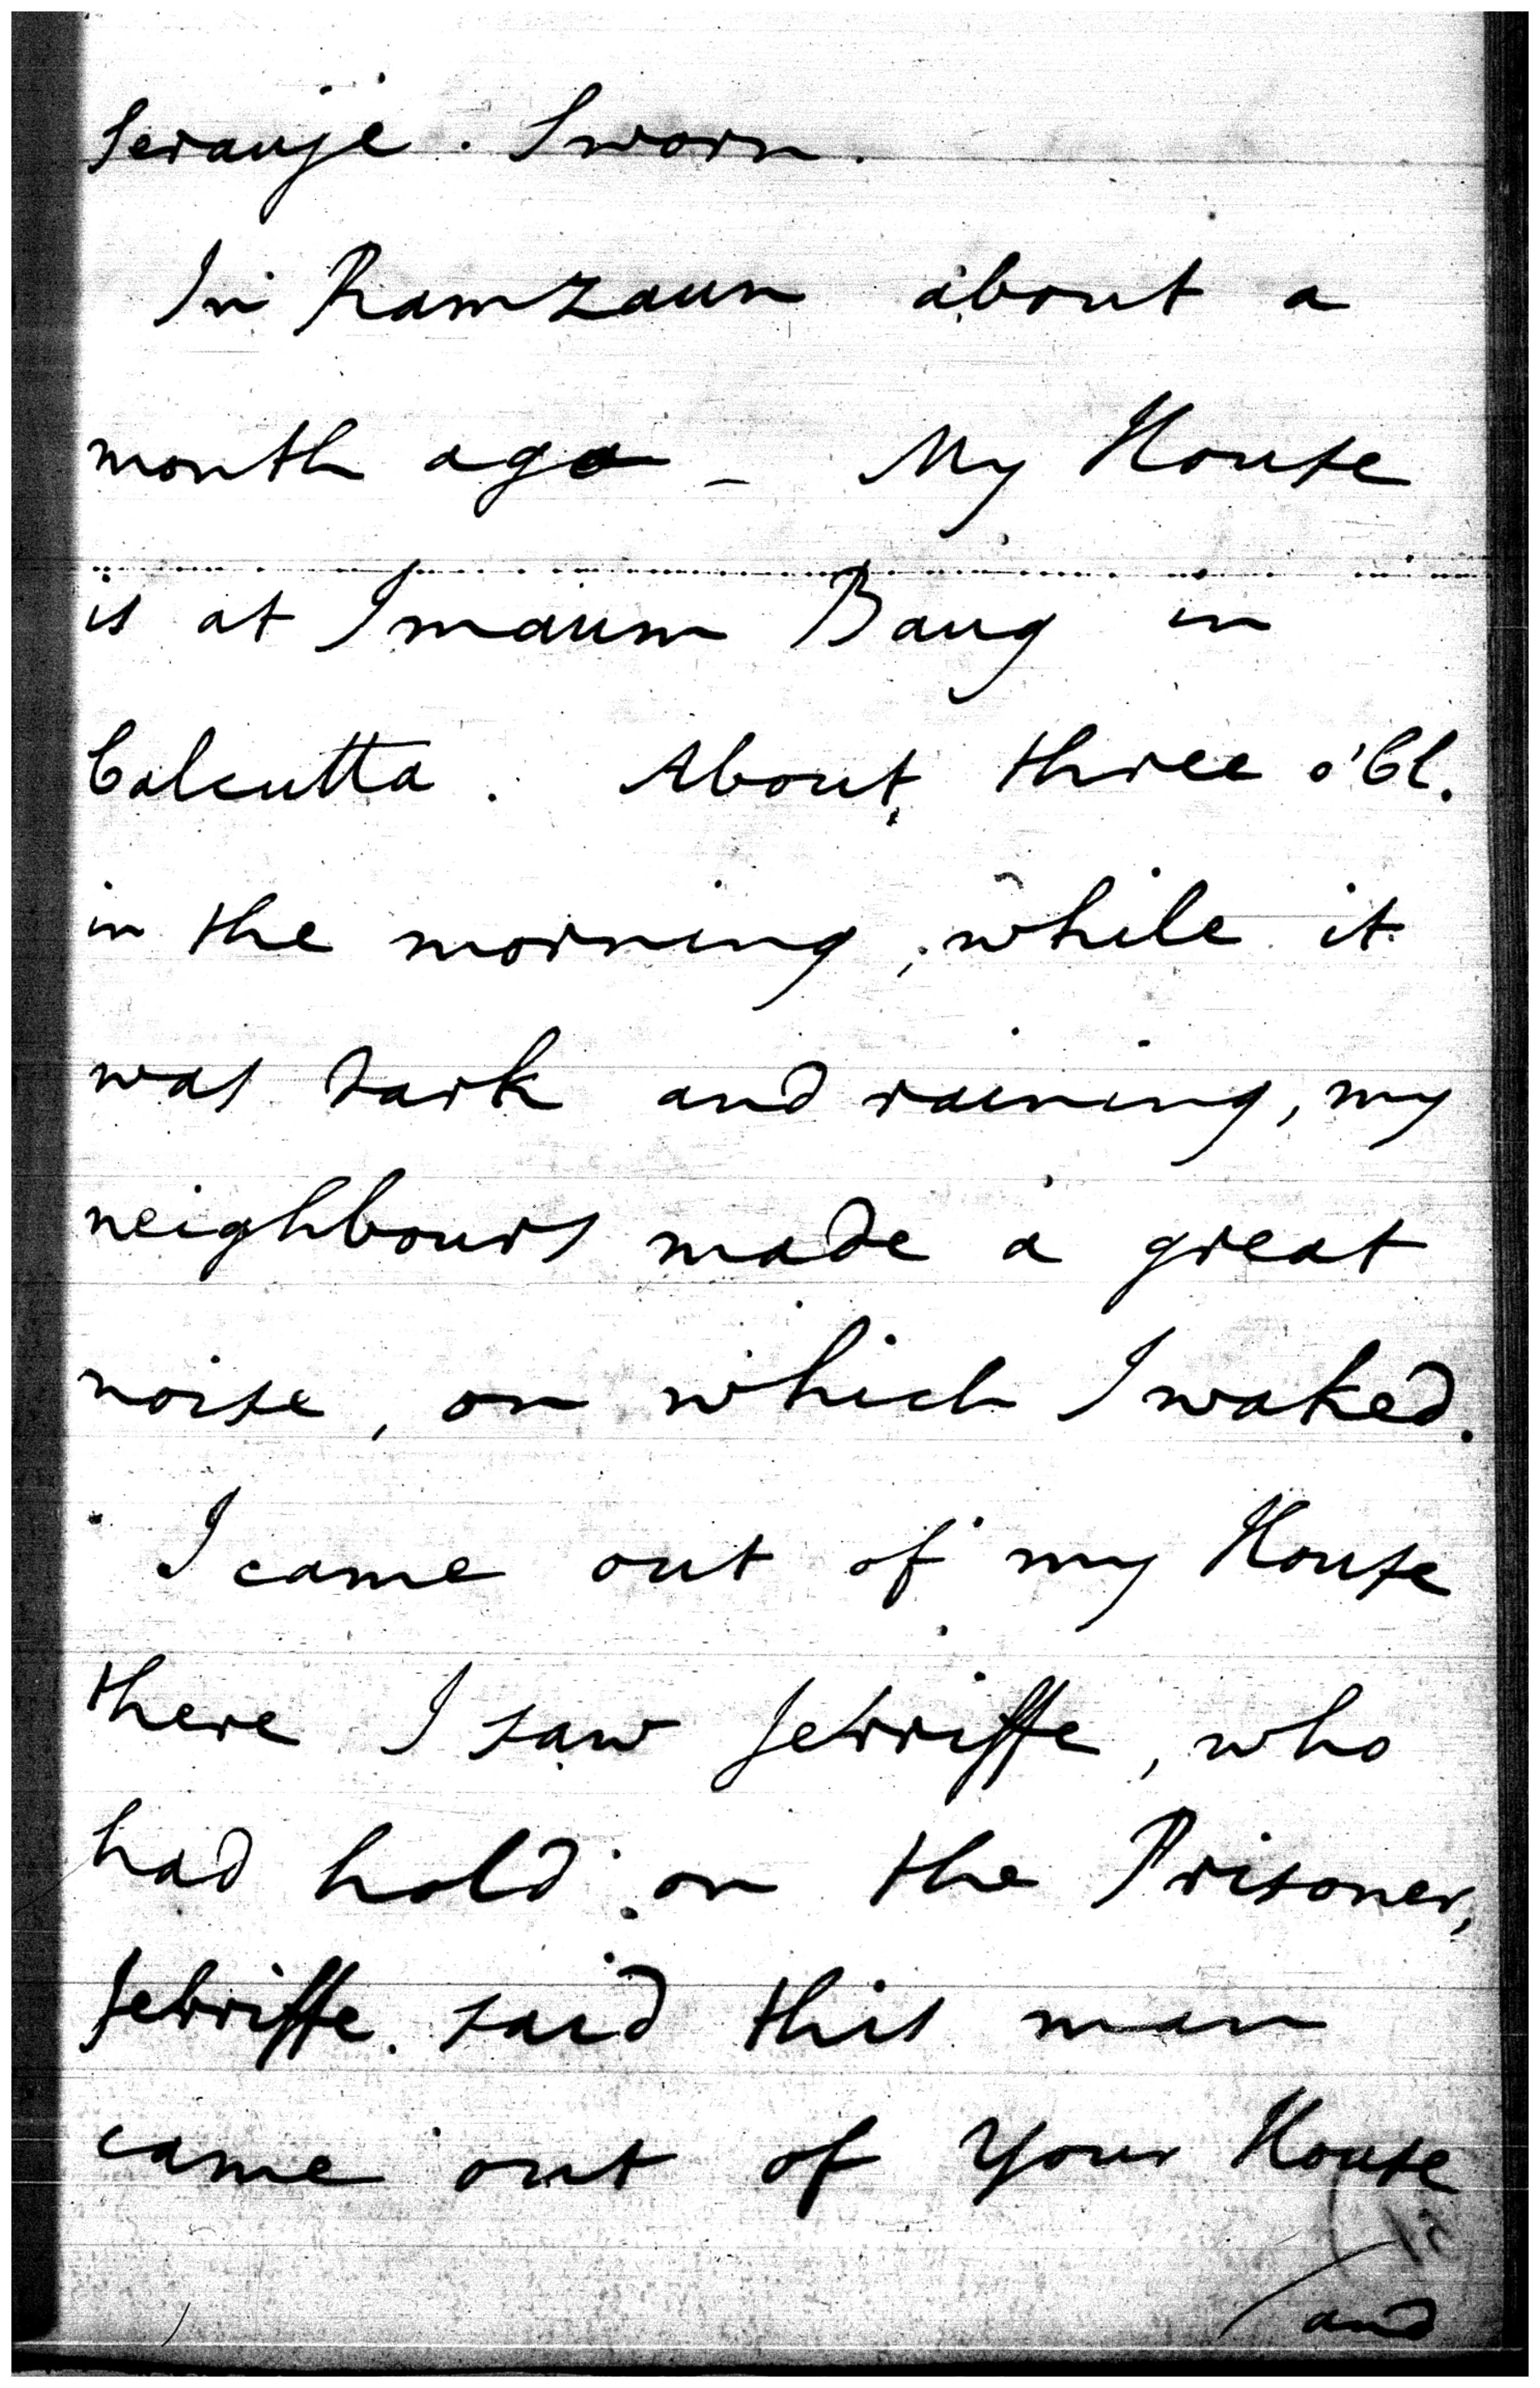 Serauje. Sworn.
In Ramzaun about a
month ago - My House
is at Imaum Baug in
Calcutta. About three o'Cl.
in the morning, while it
was dark and raining, my
neighbours made a great
noise, on which I waked.
I came out of my House
there I saw Jebriffe, who
had hold on the Prisoner,
Jebriffe said this man
came out of Your House
and